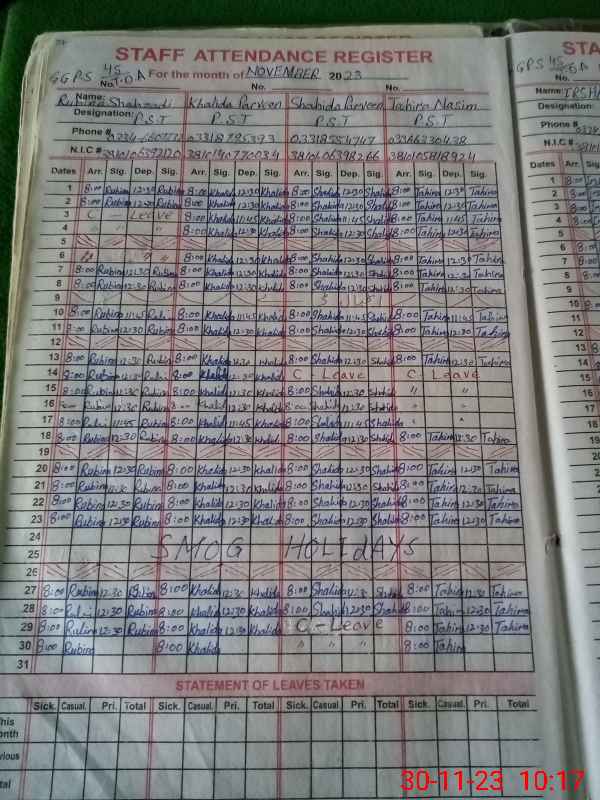 STAFF ATTENDANCE REGISTER
GGPS 45 T.D.A For the month of NOVEMBER 2023
No. No. No.
Name: Rubina Shahzadi Khalida Parveen Shahida Parveen Tahira Nasim
Designation: P.S.T P.S.T P.S.T P.S.T
Phone # 03318795393 03318554747
N.I.C #
Dates Arr. Sig. Dep. Sig. Arr. Sig. Dep. Sig. Arr. Sig. Dep. Sig. Arr. Sig. Dep. Sig.
1 8:00 Rubina 12:30 Rubina 8:00 Khalida 12:30 Khalida 8:00 Shahida 12:30 Shahida 8:00 Tahira 12:30 Tahira
2 8:00 Rubina 12:30 Rubina 8:00 Khalida 12:30 Khalida 8:00 Shahida 12:30 Shahida 8:00 Tahira 12:30 Tahira
3 C - Leave 8:00 Khalida 11:45 Khalida 8:00 Shahida 11:45 Shahida 8:00 Tahira 11:45 Tahira
4 " " 8:00 Khalida 12:30 Khalida 8:00 Shahida 12:30 Shahida 8:00 Tahira 12:30 Tahira
5
6 " " " 8:00 Khalida 12:30 Khalida 8:00 Shahida 12:30 Shahida 8:00 Tahira 12:30 Tahira
7 8:00 Rubina 12:30 Rubina 8:00 Khalida 12:30 Khalida 8:00 Shahida 12:30 Shahida 8:00 Tahira 12:30 Tahira
8 8:00 Rubina 12:30 Rubina 8:00 Khalida 12:30 Khalida 8:00 Shahida 12:30 Shahida 8:00 Tahira 12:30 Tahira
9
10 8:00 Rubina 11:45 Rubina 8:00 Khalida 11:45 Khalida 8:00 Shahida 11:45 Shahida 8:00 Tahira 11:45 Tahira
11 8:00 Rubina 12:30 Rubina 8:00 Khalida 12:30 Khalida 8:00 Shahida 12:30 Shahida 8:00 Tahira 12:30 Tahira
12
13 8:00 Rubina 12:30 Rubina 8:00 Khalida 12:30 Khalida 8:00 Shahida 12:30 Shahida 8:00 Tahira 12:30 Tahira
14 8:00 Rubina 12:30 Rubina 8:00 Khalida 12:30 Khalida C Leave C Leave
15 8:00 Rubina 12:30 Rubina 8:00 Khalida 12:30 Khalida 8:00 Shahida 12:30 Shahida " "
16 8:00 Rubina 12:30 Rubina 8:00 Khalida 12:30 Khalida 8:00 Shahida 12:30 Shahida " "
17 8:00 Rubina 11:45 Rubina 8:00 Khalida 11:45 Khalida 8:00 Shahida 11:45 Shahida " "
18 8:00 Rubina 12:30 Rubina 8:00 Khalida 12:30 Khalida 8:00 Shahida 12:30 Shahida 8:00 Tahira 12:30 Tahira
19
20 8:00 Rubina 12:30 Rubina 8:00 Khalida 12:30 Khalida 8:00 Shahida 12:30 Shahida 8:00 Tahira 12:30 Tahira
21 8:00 Rubina 12:30 Rubina 8:00 Khalida 12:30 Khalida 8:00 Shahida 12:30 Shahida 8:00 Tahira 12:30 Tahira
22 8:00 Rubina 12:30 Rubina 8:00 Khalida 12:30 Khalida 8:00 Shahida 12:30 Shahida 8:00 Tahira 12:30 Tahira
23 8:00 Rubina 12:30 Rubina 8:00 Khalida 12:30 Khalida 8:00 Shahida 12:30 Shahida 8:00 Tahira 12:30 Tahira
24
25 SMOG HOLIdAYS
26
27 8:00 Rubina 12:30 Rubina 8:00 Khalida 12:30 Khalida 8:00 Shahida 12:30 Shahida 8:00 Tahira 12:30 Tahira
28 8:00 Rubina 12:30 Rubina 8:00 Khalida 12:30 Khalida 8:00 Shahida 12:30 Shahida 8:00 Tahira 12:30 Tahira
29 8:00 Rubina 12:30 Rubina 8:00 Khalida 12:30 Khalida C - Leave 8:00 Tahira 12:30 Tahira
30 8:00 Rubina 8:00 Khalida " " " 8:00 Tahira
31
STATEMENT OF LEAVES TAKEN
Sick. Casual. Pri. Total Sick. Casual. Pri. Total Sick. Casual. Pri. Total Sick. Casual. Pri. Total
30-11-23 10:17